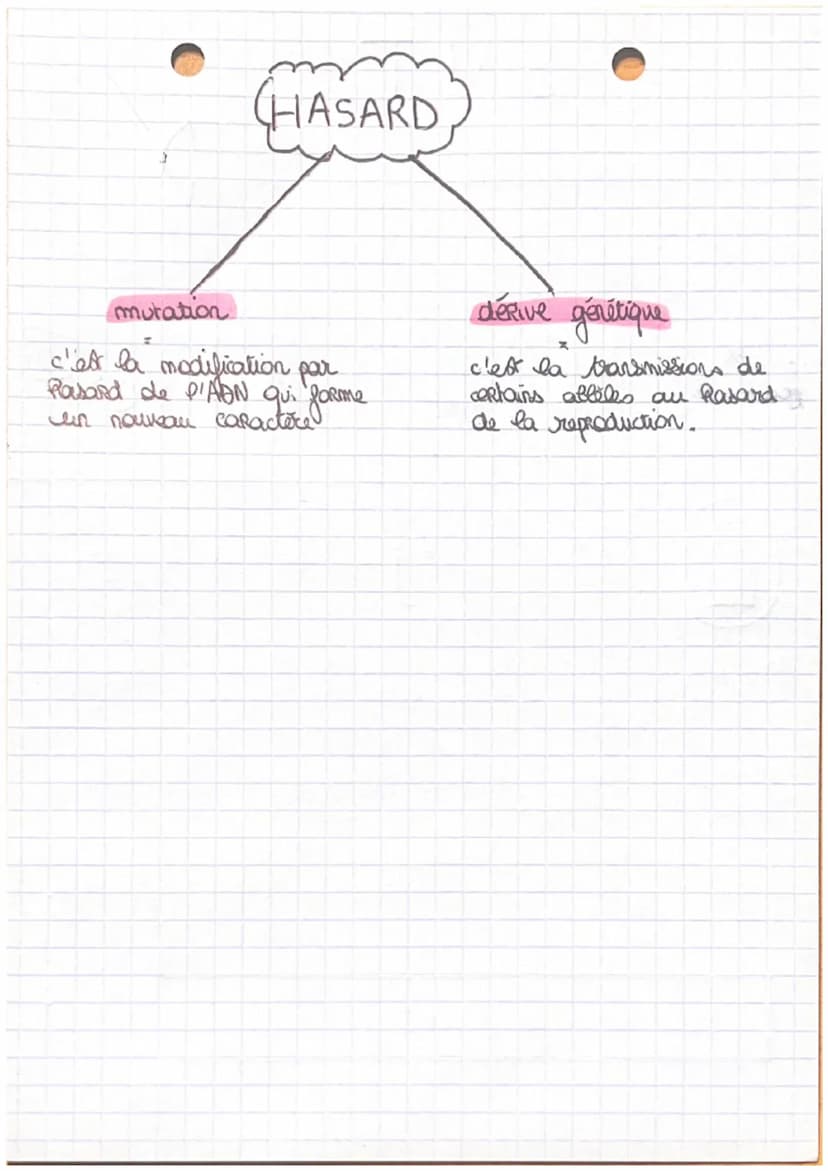 HASARD
mutation
=
c'est la modification par
hasard de l'ADN qui forme
un nouveau caractère
dérive génétique
=
c'est la transmissions de
certains allèles au hasard
de la reproduction.